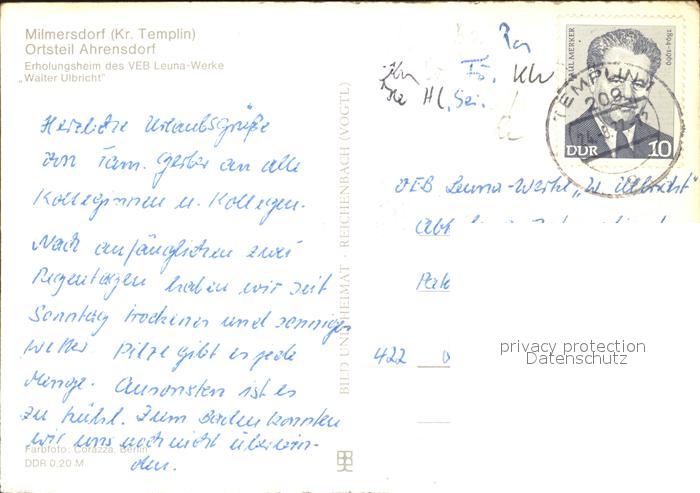 Milmersdorf (Kr. Templin)
Ortsteil Ahrensdorf
Erholungsheim des VEB Leuna-Werke
„Walter Ulbricht"
Herzliche Urlaubsgrüße
von Fam. Gerber an alle
Kolleginnen u. Kollegen.
Nach anfänglichen zwei
Regentagen haben wir seit
Sonntag trockenes und sonniges
Wetter. Pilze gibt es jede
Menge. Ansonsten ist es
zu kühl. Zum Baden konnten
wir uns noch nicht überwin-
den.
Farbfoto: Corazza, Berlin
DDR 0,20 M
BILD UND HEIMAT · REICHENBACH (VOGTL)
Hl. Sei.
PAUL MERKER
1894-1969
DDR 10
TEMPLIN 1
209
VEB Leuna-Werke „W. Ulbricht"
Abt
422
privacy protection
Datenschutz